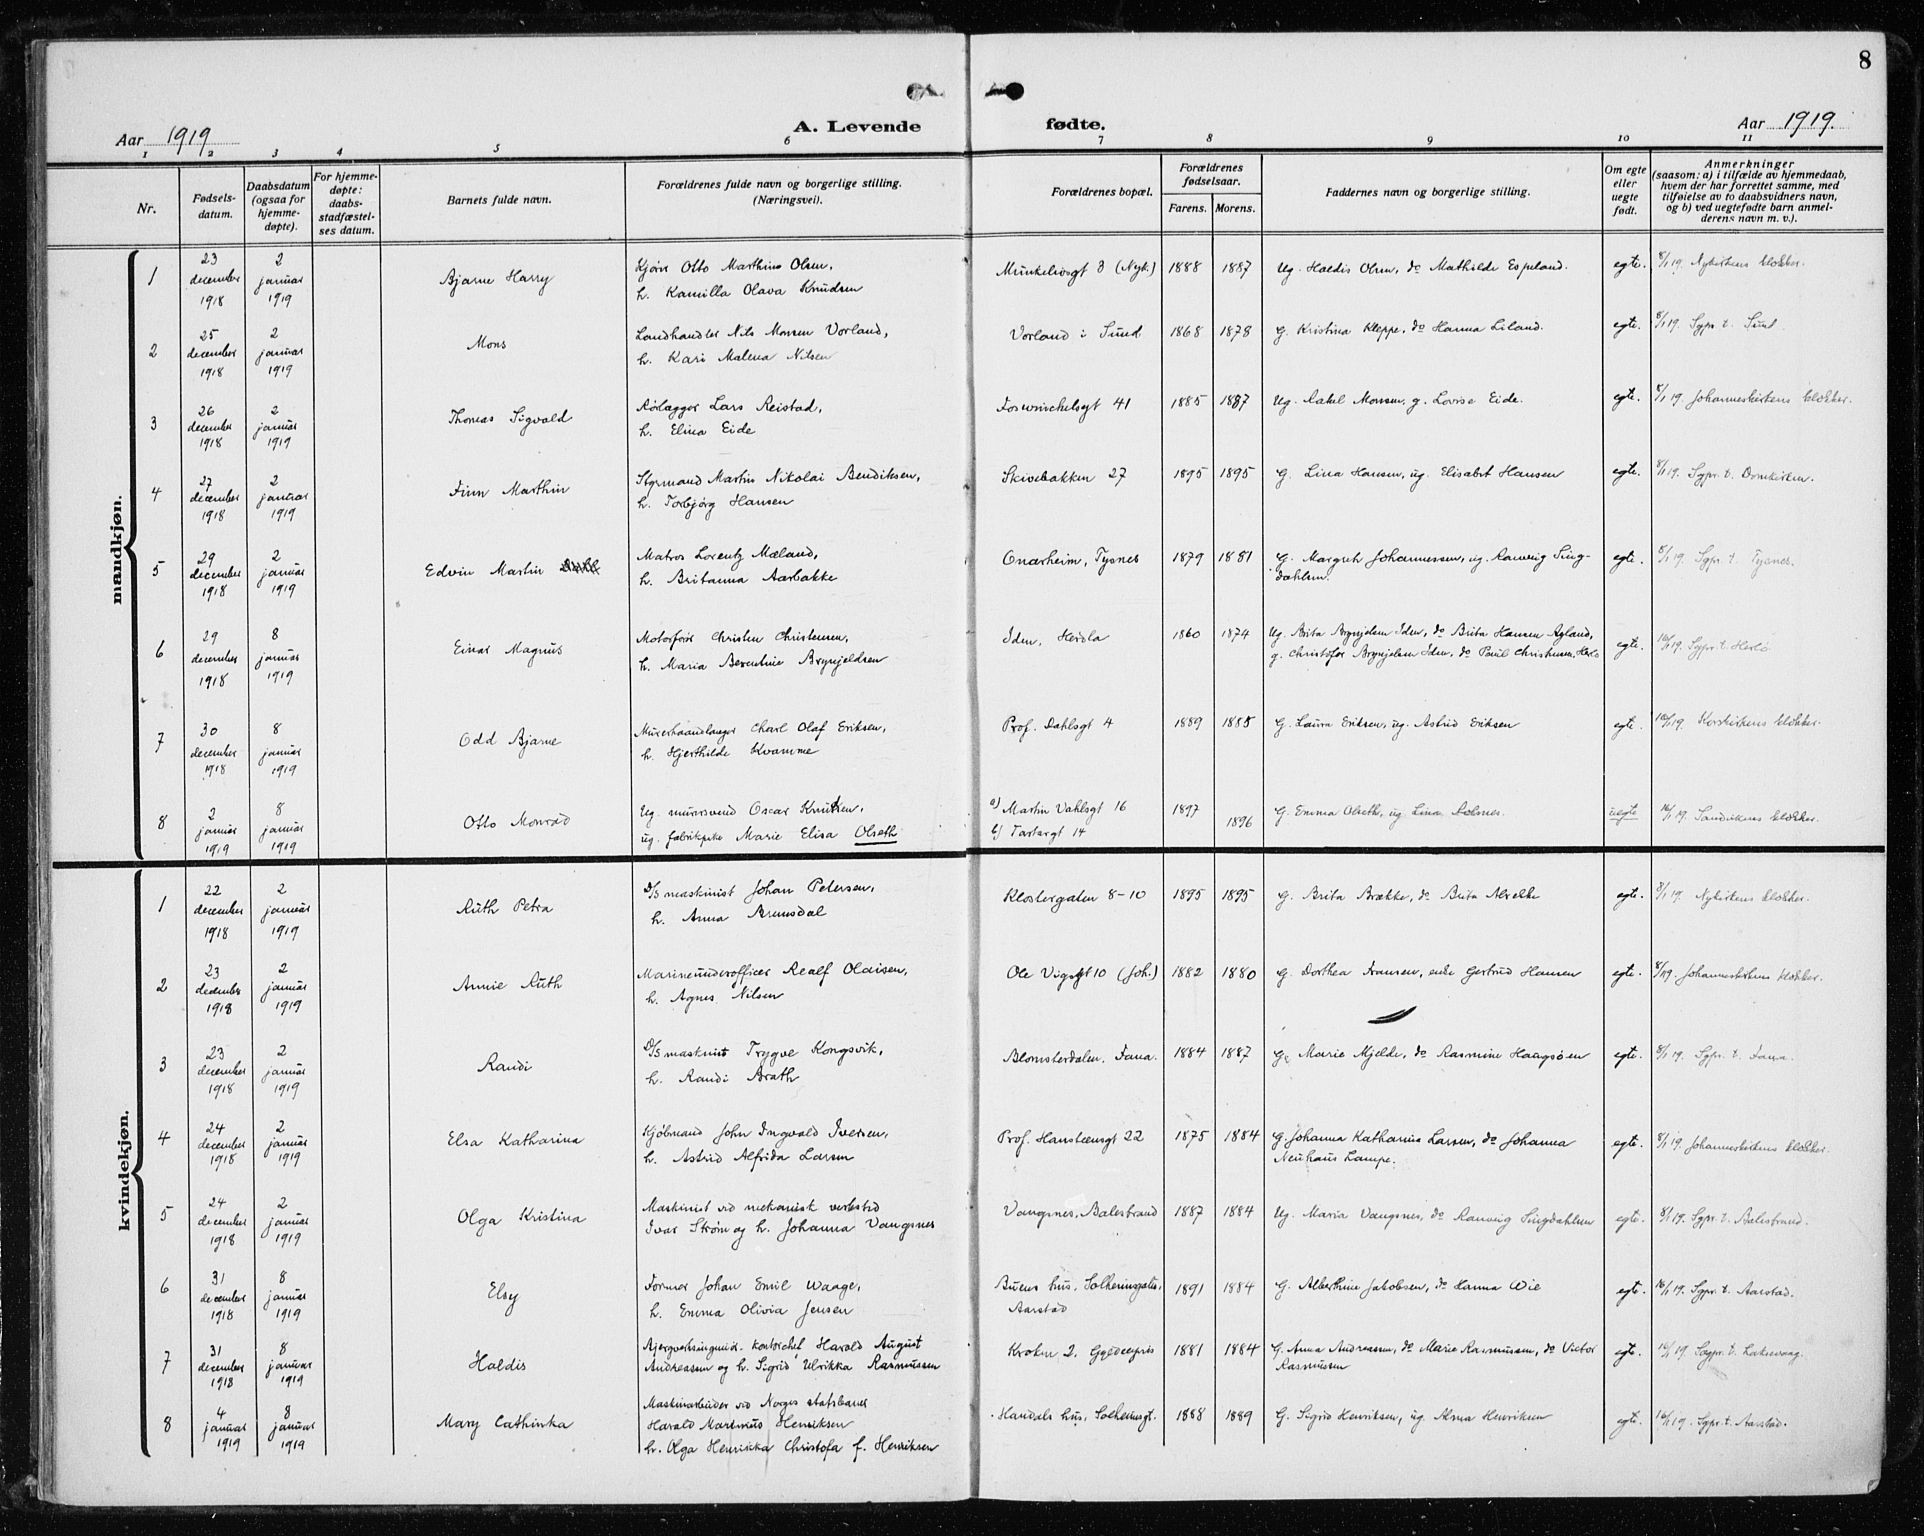 8
Aar 1919
A. Levende fødte.
Aar 1919.
1 2 3 4 5 6 7 8 9 10 11
Nr.
Fødsels-
datum.
Daabsdatum
(ogsaa for
hjemme-
døpte).
For hjemme-
døpte:
daabs-
stadfæstel-
ses datum.
Barnets fulde navn.
Forældrenes fulde navn og borgerlige stilling.
(Næringsvei).
Forældrenes bopæl.
Forældrenes
fødselsaar.
Farens. Morens.
Faddernes navn og borgerlige stilling.
Om egte
eller
uegte
født.
Anmerkninger
(saasom: a) i tilfælde av hjemmedaab,
hvem der har forrettet samme, med
tilføielse av to daabsvidners navn,
og b) ved uegtefødte barn anmel-
derens navn m. v.).
mandkjøn.
1
23
december
1918
2
januar
1919
Bjarne Harry
Kjører Otto Marthins Olsen,
h. Kamilla Olava Knudsen
Munkelivsgt 3 (Nyk.) 1888 1887 Ug. Haldis Olsen, do Mathilde Espeland. egte. 8/1 19. Nykirkens klokker.
2
25
december
1918
2
januar
1919
Mons
Landhandler Nils Monsen Vorland,
h. Kari Malena Nilsen
Vorland i Sund 1868 1878 G. Kristina Kleppe, do Hanna Liland. egte. 8/1 19. Sgpr. t. Sund.
3
26
december
1918
2
januar
1919
Thomas Sigvald
Rørlægger Lars Reistad,
h. Elina Eide
Fosswinckelsgt 41 1885 1887 Ug. Rakel Monsen, g. Lovise Eide. egte. 8/1 19. Johanneskirkens klokker.
4
27
december
1918
2
januar
1919
Finn Marthin
Styrmand Martin Nikolai Bendiksen,
h. Torbjørg Hansen
Skivebakken 27 1895 1895 G. Lina Hansen, ug. Elisabet Hansen egte. 8/1 19. Sgpr. t. Domkirken.
5
29
december
1918
2
januar
1919
Edvin Martin
Matros Lorentz Mæland,
h. Britanna Aarbakke
Onarheim, Tysnes 1879 1881 G. Margrete Johannessen, ug. Ranveig Sing-
dahlsen. egte. 8/1 19. Sgpr. t. Tysnes.
6
29
december
1918
8
januar
1919
Einar Magnus
Motorfører Christen Christensen,
h. Maria Berentine Brynjeldsen
Iden, Herdla 1860 1874 Ug. Brita Brynjelsen Iden, do Brita Hansen Agland,
g. Christofer Brynjelsen Iden, do Poul Christensen, Herlø egte. 16/1 19. Sgpr. t. Herlø.
7
30
december
1918
8
januar
1919
Odd Bjarne
Murerhaandlanger Charl Olaf Eriksen,
h. Hjerthilde Kvamme
Prof. Dahlsgt 4 1889 1885 G. Laura Eriksen, ug. Astrid Eriksen egte. 16/1 19. Korskirkens klokker.
8
2
januar
1919
8
januar
1919
Otto Monrad
Ug. murersvend Oscar Knudsen,
ug. fabrikpike Marie Elisa Olseth
a) Martin Vahlsgt 16 1897
b) Tartargt 14 1896
G. Emma Olseth, ug. Lina Holmes. uegte 16/1 19. Sandvikens klokker.
kvindekjøn.
1
22
december
1918
2
januar
1919
Ruth Petra
D/S maskinist Johan Petersen,
h. Anna Bremsdal
Klostergaten 8-10 1895 1895 G. Brita Brække, do Brita Alvelke egte. 8/1 19. Nykirkens klokker.
2
23
december
1918
2
januar
1919
Annie Ruth
Marineunderofficer Realf Olaisen,
h. Agnes Nilsen
Ole Vigsgt 10 (Joh.) 1882 1880 G. Dorthea Fransen, enke Gertrud Hansen egte. 8/1 19. Johanneskirkens klokker.
3
23
december
1918
2
januar
1919
Randi
D/S maskinist Trygve Kongsvik,
h. Randi Bråth
Blomsterdalen, Fana. 1884 1887 G. Marie Mjelde, do Rasmine Haugsøen egte. 8/1 19. Sgpr. t. Fana.
4
24
december
1918
2
januar
1919
Elsa Katharina
Kjøbmand John Ingvald Iversen,
h. Astrid Alfrida Larsen
Prof. Hansteensgt 22 1875 1884 G. Johanna Katharina Larsen, do Johanna
Neuhaus Lampe. egte. 8/1 19. Johanneskirkens klokker.
5
24
december
1918
2
januar
1919
Olga Kristina
Maskinist ved mekanisk verksted
Ivar Strøm og h. Johanna Vangsnes
Vangsnes, Balestrand 1887 1884 Ug. Maria Vangsnes, do Ranveig Singdahlsen egte. 8/1 19. Sgpr. t. Balestrand.
6
31
december
1918
8
januar
1919
Elsy
Former Johan Emil Waage,
h. Emma Olivia Jensen
Buens hus, Solheimsgaten,
Aarstad 1891 1884 G. Alberthine Jakobsen, do Hanna Wie egte. 16/1 19. Sgpr. t. Aarstad.
7
31
december
1918
8
januar
1919
Haldis
kontorchef Harald August
Andreassen og h. Sigrid Ulrikka Rasmussen
Kroken 2, Gyldenpris 1881 1884 G. Anna Andreassen, do Marie Rasmussen, do Victor
Rasmussen egte. 16/1 19. Sogpr. t. Laksevaag.
8
4
januar
1919
8
januar
1919
Mary Cathinka
Maskinarbeider ved Norges statsbaner
Harald Martinus Henriksen
h. Olga Henrikka Christofa f. Henriksen
Handels hus, Solheimsgt. 1888 1889 G. Sigrid Henriksen, ug. Alma Henriksen egte. 16/1 19. Sgpr. t. Aarstad.